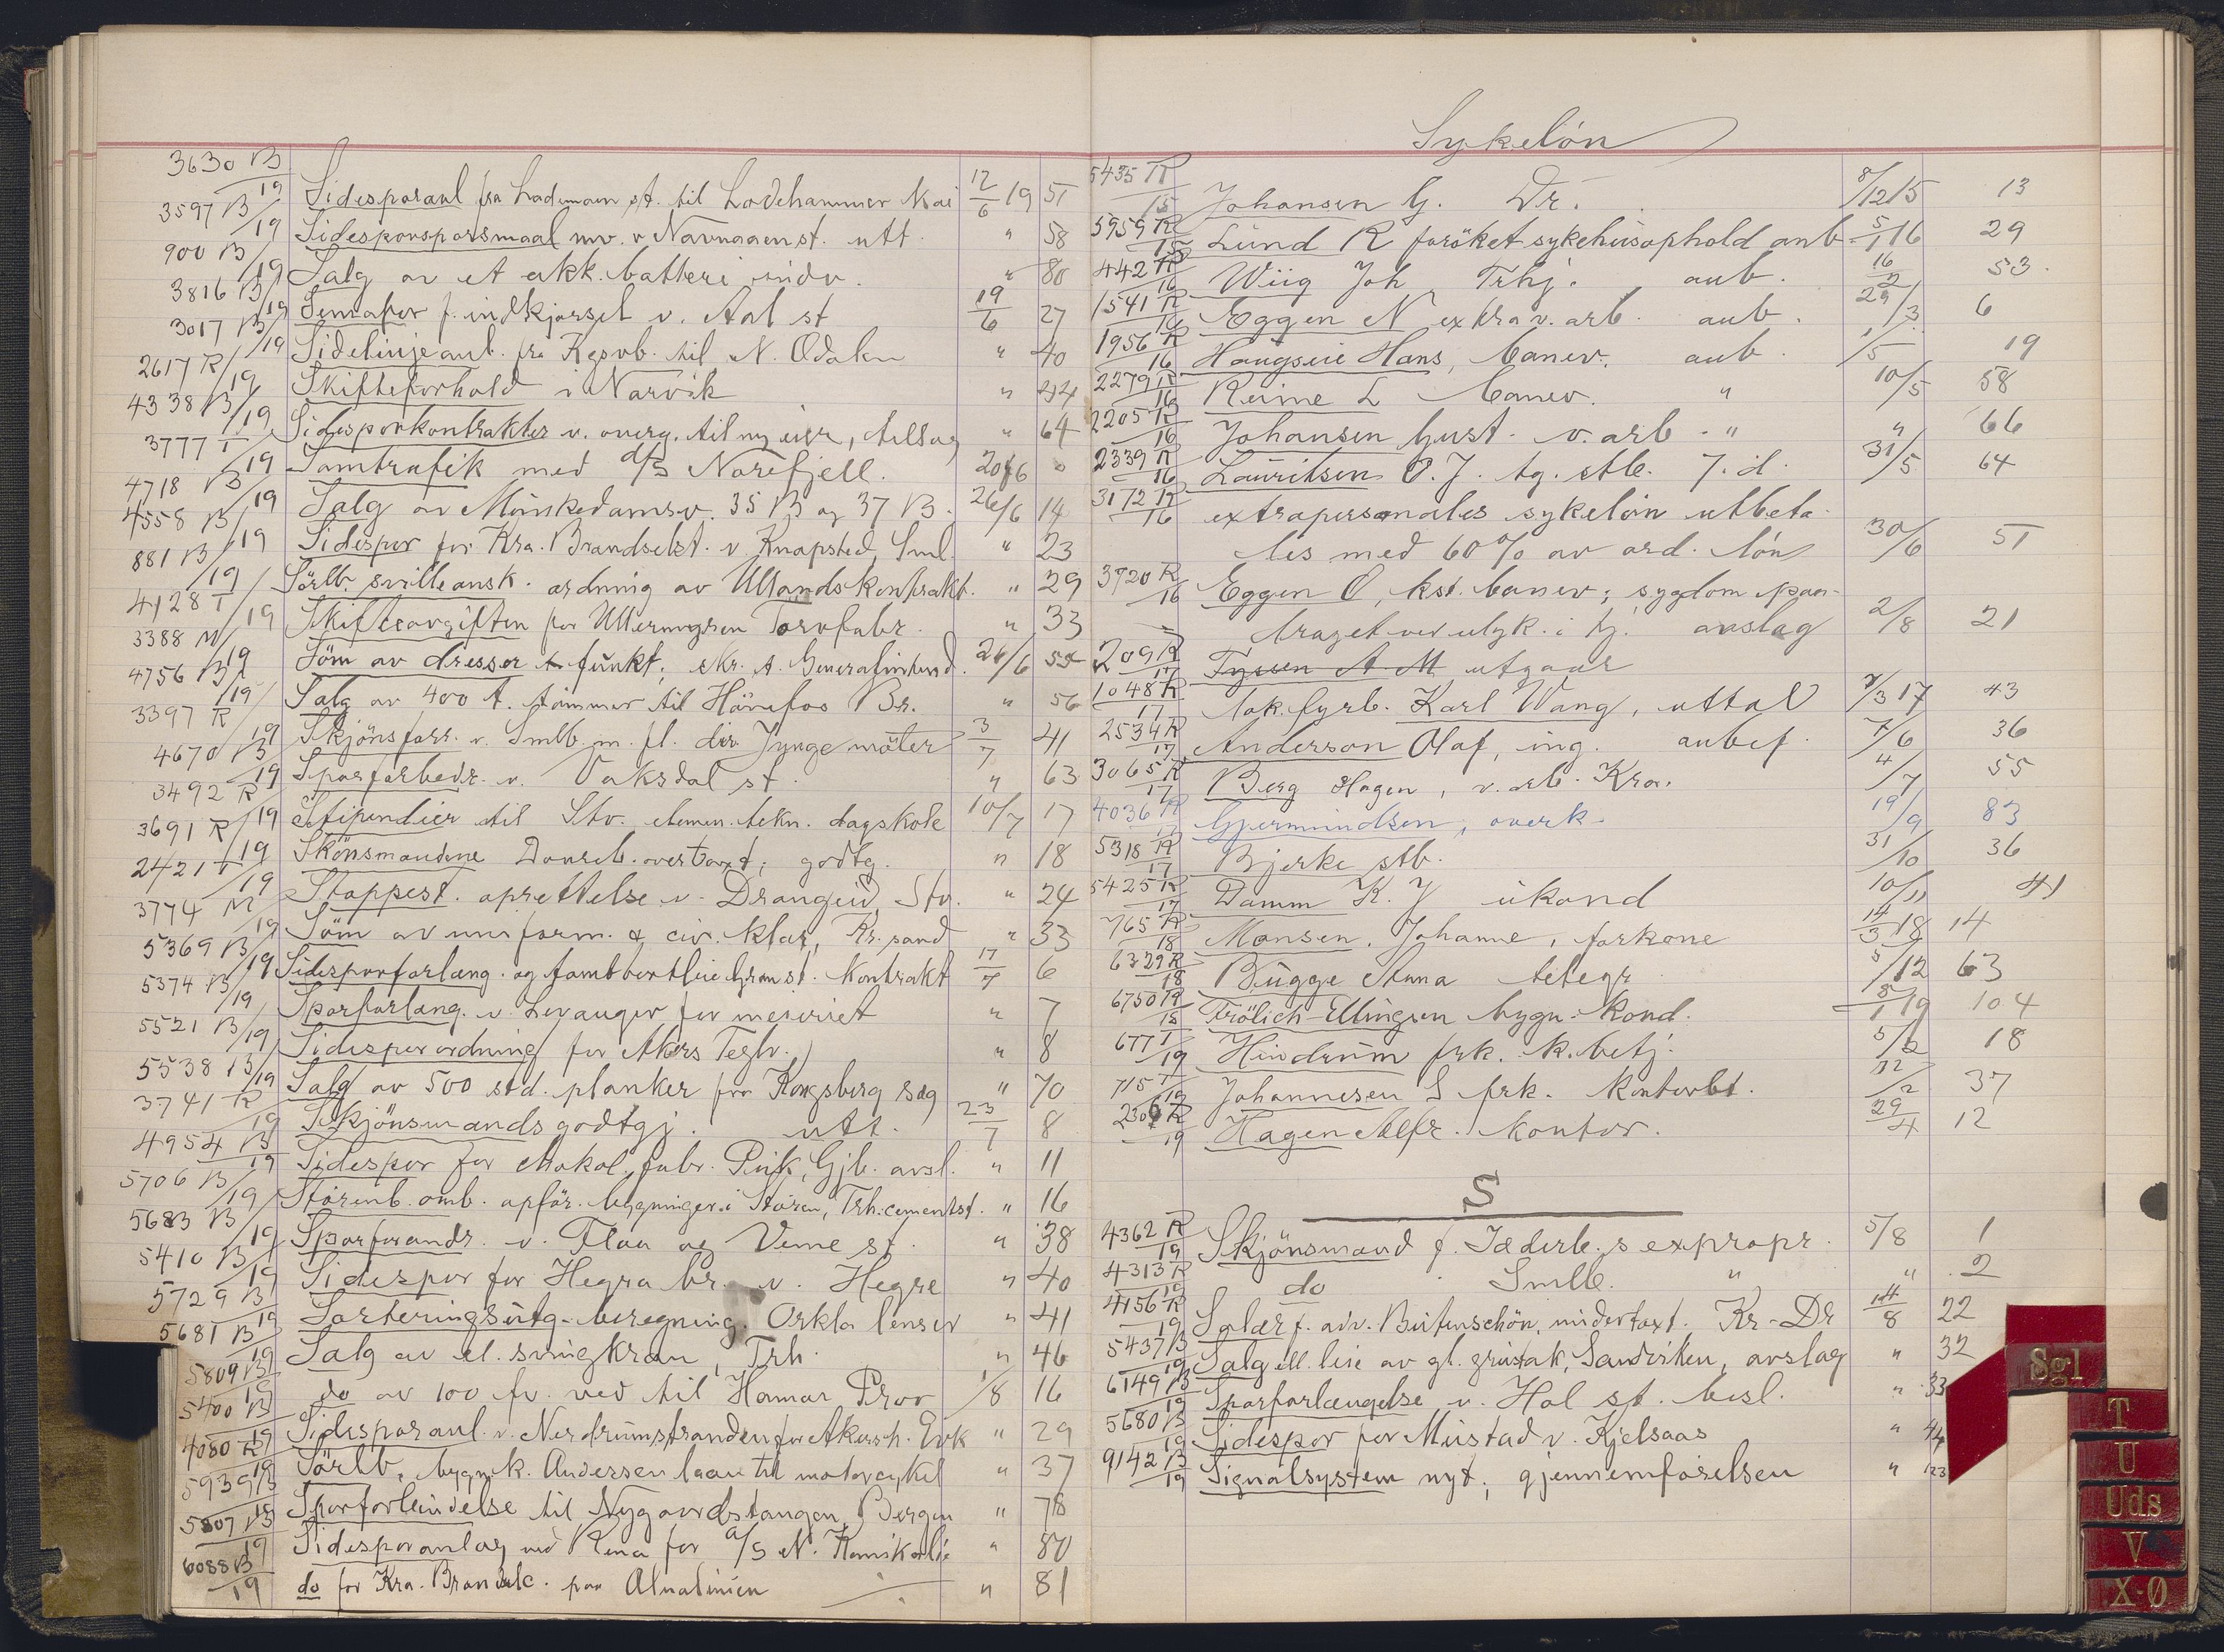 3630 B/19 Sidesporanl fra Lademoen st. til Ladehammer Kai 12/6 19 51
3597 B/19 Sidesporsporsmaal mv. v Navnaaen st. utt. " 58
900 B/19 Salg av et akk. batteri " 80
3816 B/19 Semafor f. indkjørsel v. Aal st 19/6 27
3017 B/19 Sidelinjeanl. fra Kgsvb. til N. Odalen " 40
2617 R/19 Skifteforhold i Narvik " 44
4338 B/19 Sidesporkontrakter v. overg. til ny eier, " 64
3777 T/19 Samtrafik med d/s Norefjell. 20/6
4718 B/19 Salg av Munkedamsv. 35 B og 37 B. 26/6 14
4558 B/19 Sidespor for Kra. Brandselsk. v. Knapstad, Sml. " 23
881 B/19 Sörlb. svilleansk. ordning av Ullandskontrakt. " 29
4128 T/19 Skifteavgiften for Torvfabr. " 33
3388 M/19 Söm av dresser t. funkt. 26/6 55
4756 B/19 Salg av 400 t. tömmer til Hönefos Br. " 56
3397 R/19 Skjönsforr. v. Smlb. m. fl. dir. Jynge möter 3/7 41
4670 B/19 Sporforbedr. v. Vaksdal st. " 63
3492 R/19 Stipendier til Stv. elemen. tekn. dagskole 10/7 17
3691 R/19 Skönsmændene Dovreb. overtaxt; godtg. " 18
2421 T/19 Stoppest. oprettelse v. Drangeid, Stv. " 24
3774 M/19 Söm av uniform. & civ. klær, Kr.sand " 33
5369 B/19 Sidesporforlæng. og tomtbortleie Gran st. Kontrakt 17/7 6
5374 B/19 Sporforlæng. v. Levanger for meieriet " 7
5521 B/19 Sidesporordning for Akers Teglv. " 8
5538 B/19 Salg av 500 std. planker fra Kongsberg sag " 70
3741 R/19 Skjönsmandsgodtgj. utt. 23/7 8
4954 B/19 Sidespor for chokol. fabr. Pink, Gjb. avsl. " 11
5706 B/19 Störenb. omb. opför. bygninger i Stören, Trh. cementst. " 16
5683 B/19 Sporforandr. v. Flaa og Vinne st. " 38
5410 B/19 Sidespor for Hegra br. v. Hegre " 40
5729 B/19 Sorteringsutg.-beregning. Orkla lenser " 41
5681 B/19 Salg av el. svingkran, Trh. " 46
5809 B/19 do av 100 fv. ved til Hamar Prov 1/8 16
5400 B/19 Sidesporanl. v. Nerdrumstranden for Akersh. Evk " 29
4080 R/19 Sörlb. bygn.k. Andersen laan til motorcykel " 37
5939 B/19 Sporforbindelse til Nygaardstangen, Bergen " 78
5807 B/19 Sidesporanlæg ved Rena for A/S N. Kemikalie " 80
6088 B/19 do for Kra. Brandselc. paa Alnalinien " 81
Sykelön
5435 R/15 Johansen G. Dr. 8/12 15 13
5959 R/15 Lund R forøket sykehusophold anb. 5/1 16 29
442 R/16 Wiig Joh Trhj. anb. 16/2 53.
1541 R/16 Eggen N extra v. arb. anb. 29/3 6
1956 R/16 Haugseie Hans, banev. anb. 1/5 19
2279 R/16 Reime L banev. " 10/5 58
2205 R/16 Johansen Gust. v. arb. " " 66
2339 R/16 Lauritsen O. J. tg. stb. 7. d. 31/5 64
3172 R/16 extrapersonales sykelön utbeta-
les med 60% av ord. lön 30/6 51
3720 R/16 Eggen O, kst. banev; sygdom paa-
draget ved ulyk. i tj. avslag 2/8 21
209 R/17 Tyssen A. M utgaar
1048 R/17 lok. fyrb. Karl Wang, uttal 7/3 17 43
2534 R/17 Anderson Olaf, ing. anbef. 7/6 36
3065 R/17 Berg Hagen, v. arb. Kra. 4/7 55
4036 R/17 Gjermundsen, overk. 19/9 83
5318 R/17 Bjerke stb. 31/10 36
5425 R/17 Damm K. J ukond 10/11 41
765 R/18 Monsen, Johanne, forkone 14/3 18 14
6329 R/18 Bugge Anna telegr 5/12 63
6750 R/18 Frölich-Ellingsen bygn. kond. 8/1 19 104
677 T/19 Hindrum frk. k. betj. 5/2 18
715 T/19 Johannesen S frk. kontorbt. 12/2 37
2306 R/19 Hagen Alfr. kontor. 29/4 12
S
4362 R/19 Skjönsmænd f. Jæderb.s expropr. 5/8 1
4313 R/19 do Smlb. " " 2
4156 R/19 Salær f. adv. Butenschön, undertaxt. Kr-Dr 14/8 22
5437 B/19 Salg ell. leie av gl. grustak, Sandviken, avslag " 32
6149 B/19 Sporforlængelse v. Hol st. besl. " 33
5680 B/19 Sidespor for Mustad v. Kjelsaas " 44
9142 B/19 Signalsystem nyt; gjennemförelsen " 123
Sgl
T
U
Uds
V
X-Ø